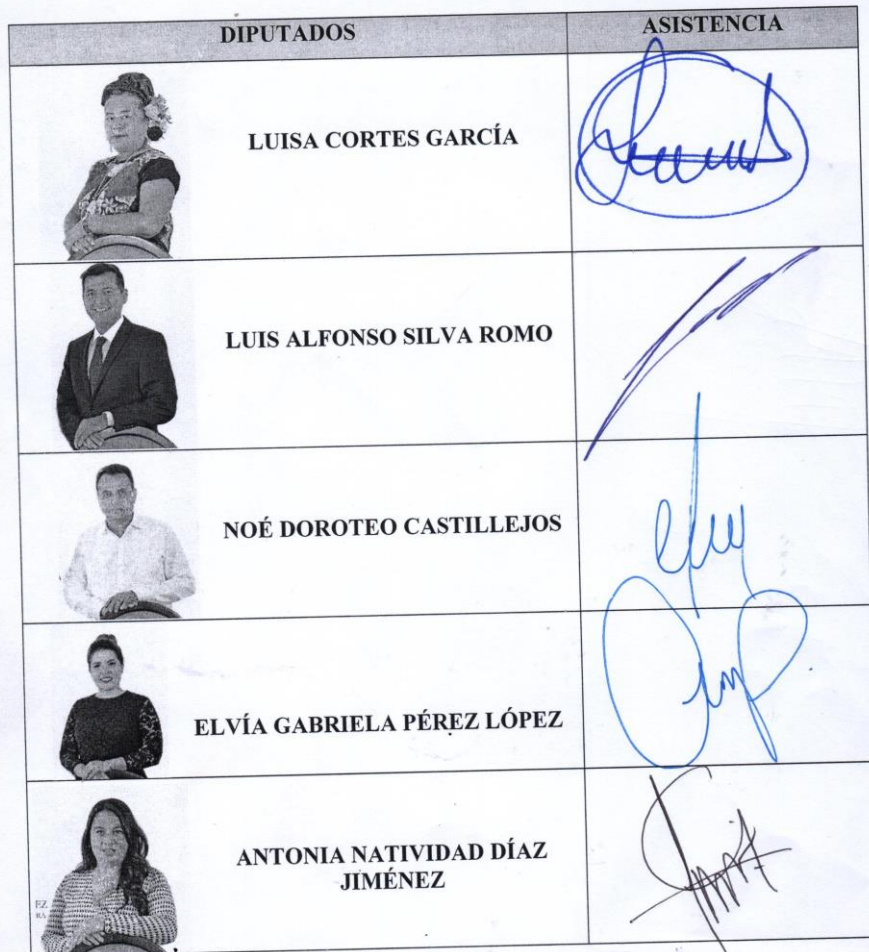 DIPUTADOS ASISTENCIA
LUISA CORTES GARCÍA
LUIS ALFONSO SILVA ROMO
NOÉ DOROTEO CASTILLEJOS
ELVÍA GABRIELA PÉREZ LÓPEZ
ANTONIA NATIVIDAD DÍAZ
JIMÉNEZ
EZ
RA